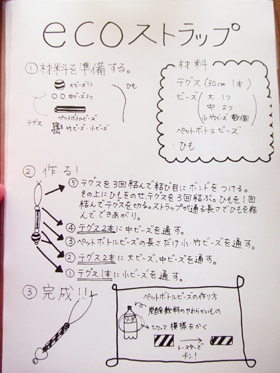 ecoストラップ
①材料を準備する。
大ビーズ1コ
中ビーズ2コ
ペットボトルビーズ
竹ビーズ・小ビーズ
テグス
ひも
材料
テグス(30cm 1本)
ビーズ(大 1コ
中 2コ
小・竹ビーズ 数個)
ペットボトルビーズ
・ひも
②作る!
⑤テグスを3回結んで結び目にボンドをつける。
その上にひもをのせ、テグスを3回結ぶ。ひもを1回
結んでテグスを切る。ストラップが通る長さでひもを結
んでできあがり。
④テグス2本に中ビーズを通す。
③ペットボトルビーズの長さだけ小・竹ビーズを通す。
②テグス2本に大ビーズ、中ビーズを通す。
①テグス1本に小ビーズを通す。
③完成!!
ペットボトルビーズの作り方
炭酸飲料のやわらかいもの
切って模様をかく
トースターで
チン!